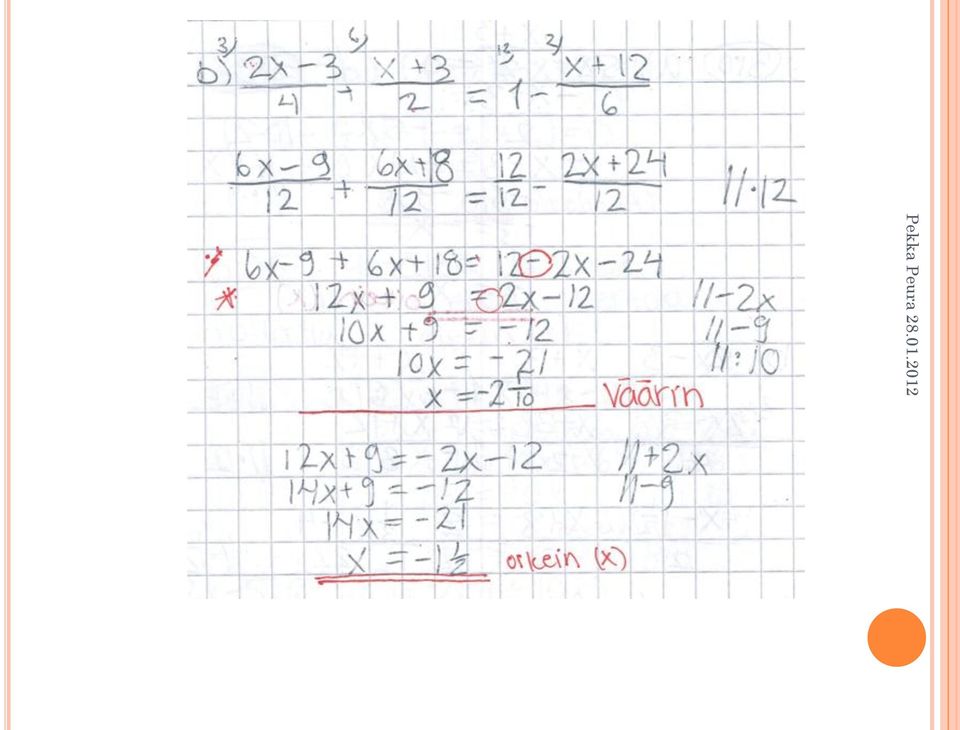 3) 6) 12) 2)
b) (2x-3)/4 + (x+3)/2 = 1 - (x+12)/6
(6x-9)/12 + (6x+18)/12 = 12/12 - (2x+24)/12 //·12
6x-9 + 6x+18 = 12-2x-24
* 12x+9 = 2x-12 //-2x
10x+9 = -12 //-9
10x = -21 //:10
x = -2 1/10 Väärin
12x+9 = -2x-12 //+2x
14x+9 = -12 //-9
14x = -21
x = -1 1/2 oikein (x)
Pekka Peura 28.01.2012